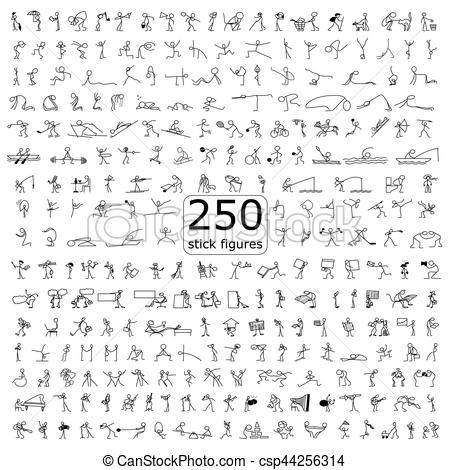 250
stick figures
© CanStockPhoto
© CanStockPhoto.com - csp44256314